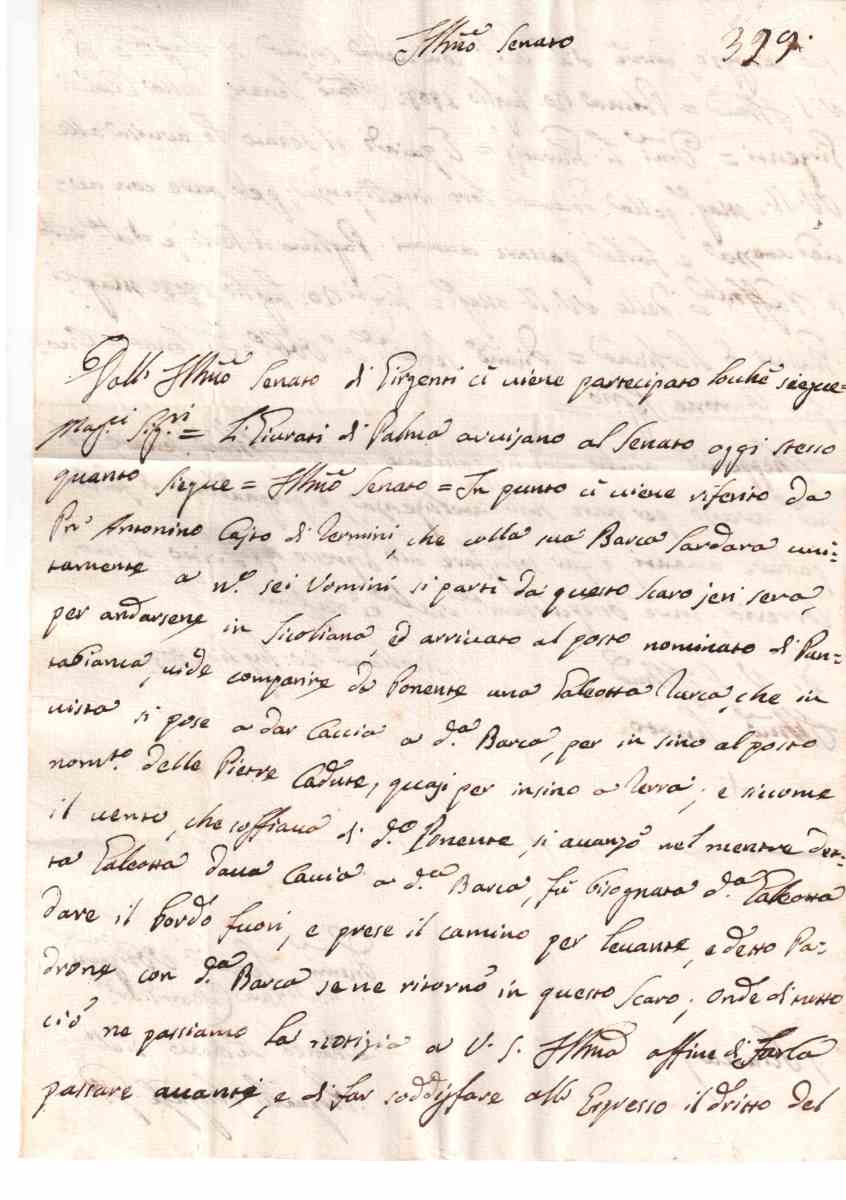 Illmo Senato 329.
Dall' Illmo Senato di Girgenti ci viene partecipato locchè siegue=
Mag.ci Sig.ri = Li Giurati di Palma avvisano al Senato oggi stesso
quanto siegue = Illmo Senato = In punto ci viene riferito da
Pn' Antonino Cajto di Termini, che colla sua Barca Sardara uni-
tamente a n.o sei Uomini si partì da questo Scaro jeri sera,
per andarsene in Siculiana, ed arrivato al posto nominato di Pun-
tabianca, vide comparire da Ponente una Galeotta Turca, che in
vista si pose a dar Caccia a d.a Barca, per in sino al posto
nom.to delle Pietre Cadute, quasi per insino a Terra; e siccome
il vento, che soffiava di d.o Ponente, si avanzò nel mentre det-
ta Galeotta dava Caccia a d.a Barca, fù bisognata d.a Galeotta
dare il bordo fuori, e prese il camino per Levante, e detto Pa-
drone con d.a Barca se ne ritornò in questo Scaro; Onde di tutto
ciò ne passiamo la notizia a V. S. Illma affine di farla
passare avanti, e di far soddisfare all' Espresso il dritto del